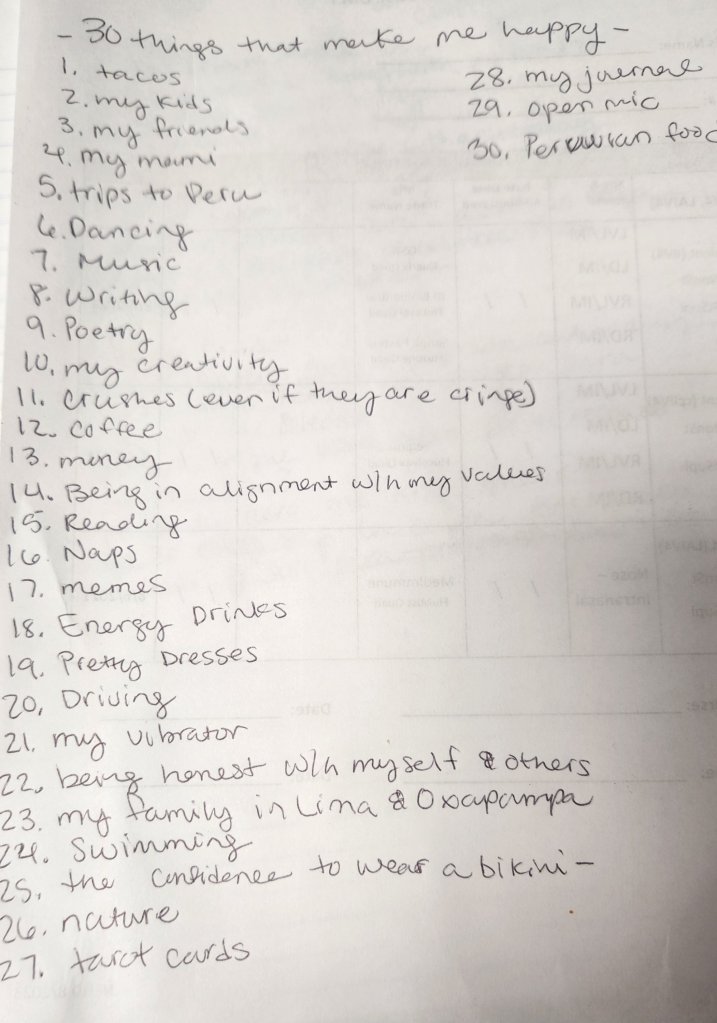 - 30 things that make me happy -
1. tacos
2. my kids
3. my friends
4. my mami
5. trips to Peru
6. Dancing
7. Music
8. Writing
9. Poetry
10. my creativity
11. crushes (even if they are cringe)
12. coffee
13. money
14. Being in alignment w/h my values
15. Reading
16. Naps
17. memes
18. Energy Drinks
19. Pretty Dresses
20. Driving
21. my vibrator
22. being honest w/h myself & others
23. my family in Lima & Oxapampa
24. Swimming
25. the confidence to wear a bikini -
26. nature
27. tarot cards
28. my journal
29. open mic
30. Peruvian food